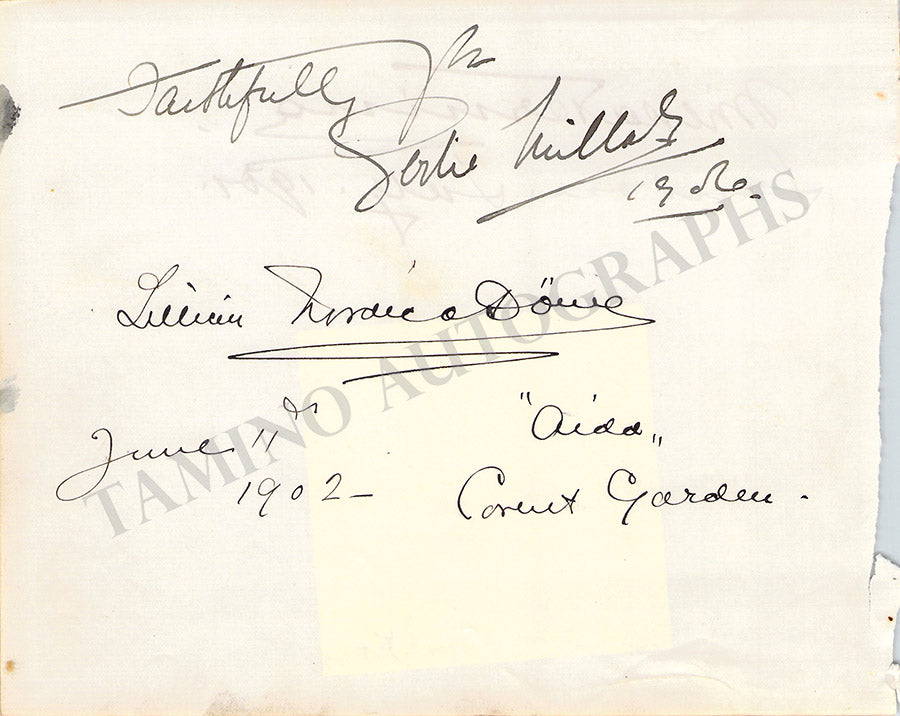 Faithfully Yrs
Gertie Millar
1906.
Lillian Nordica Döme
June 11th "Aida„
1902 – Covent Garden.
TAMINO AUTOGRAPHS